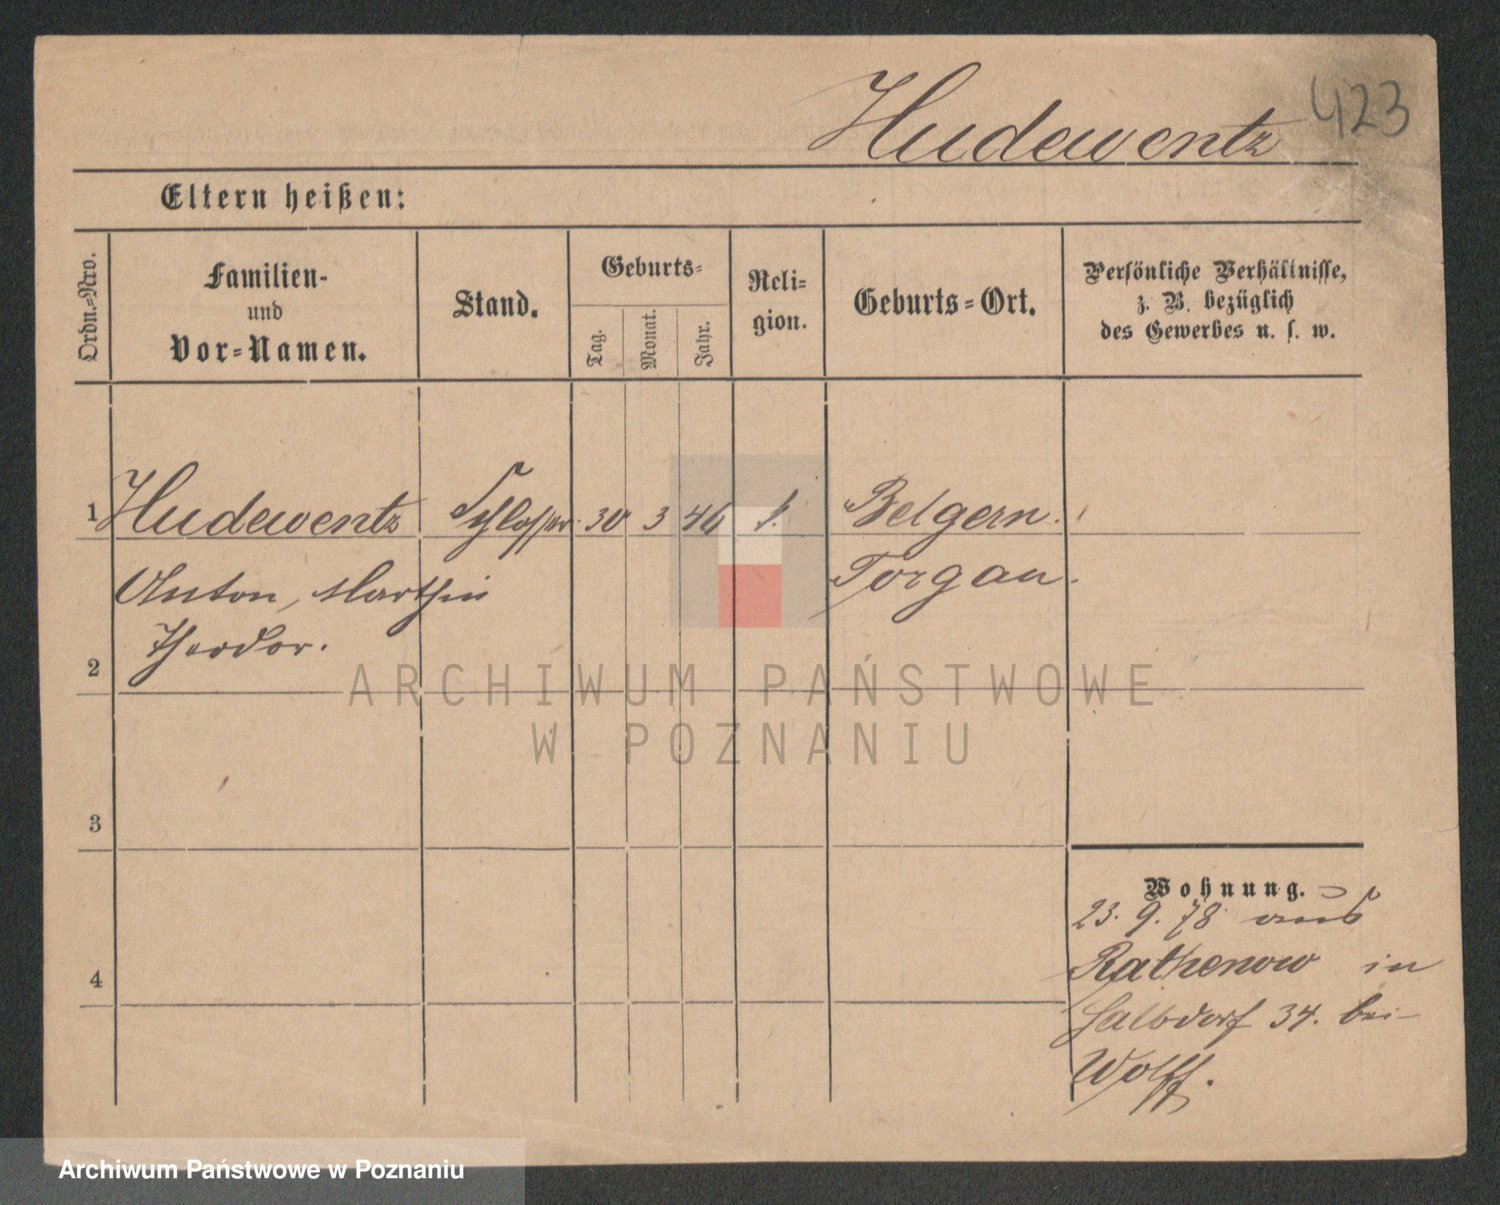 Hudewentz 423
Eltern heißen:
Ordn.-Nro.
Familien-
und
Vor-Namen.
Stand.
Geburts-
Tag.
Monat.
Jahr.
Reli-
gion.
Geburts-Ort.
Persönliche Verhältnisse,
z. B. bezüglich
des Gewerbes u. s. w.
1 Hudewentz Schlosser 30 3 46 Belgern.
Anton, Marthin Torgau.
Theodor.
2
ARCHIWUM PAŃSTWOWE
W POZNANIU
3
Wohnung.
23. 9. 78 aus
Rathenow in
4
Halbdorf 34. bei
Wolff.
Archiwum Państwowe w Poznaniu